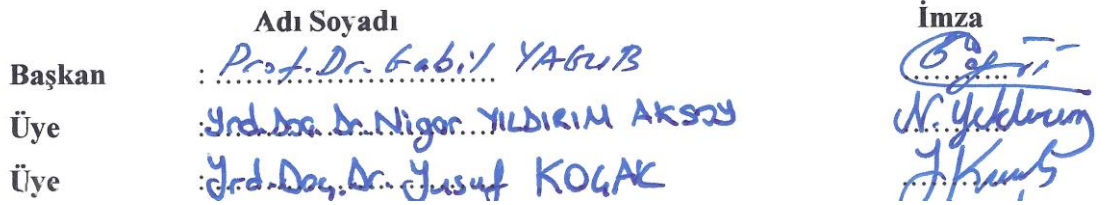 Adı Soyadı İmza
Başkan : Prof. Dr. Gabil YAGUB
Üye : Yrd. Doç. Dr. Nigar YILDIRIM AKSOY N. Yıldırım
Üye : Yrd. Doç. Dr. Yusuf KOÇAK